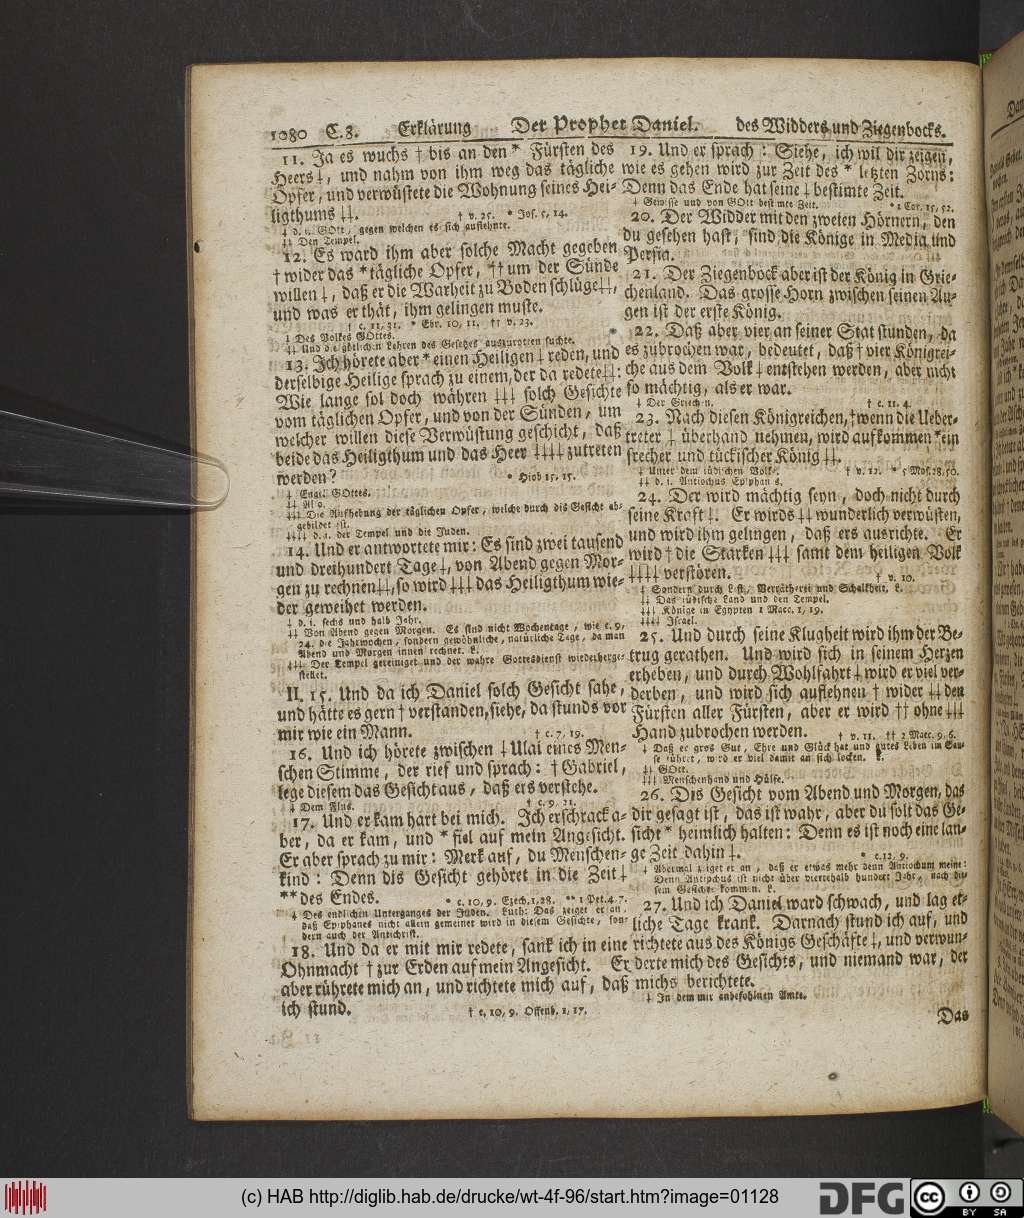 1080 C. 8. Erklärung Der Prophet Daniel. des Widders und Ziegenbocks.
11. Ja es wuchs † bis an den * Fürsten des
Heers ‡, und nahm von ihm weg das tägliche
Opfer, und verwüstete die Wohnung seines Hei-
ligthums ‡‡. † v. 25. * Jos. 5, 14.
‡ d. i. GOtt, gegen welchen es sich auflehnte.
‡‡ Den Tempel.
12. Es ward ihm aber solche Macht gegeben
† wider das * tägliche Opfer, †† um der Sünde
willen ‡, daß er die Warheit zu Boden schlüge ‡‡,
und was er thät, ihm gelingen muste.
† c. 11, 31. * Ebr. 10, 11. †† v. 23.
‡ Des Volkes GOttes.
‡‡ Und die götlichen Lehren des Gesetzes auszurotten suchte.
13. Ich hörete aber * einen Heiligen ‡ reden, und
derselbige Heilige sprach zu einem, der da redete ‡‡:
Wie lange sol doch währen ‡‡‡ solch Gesichte
vom täglichen Opfer, und von der Sünden, um
welcher willen diese Verwüstung geschicht, daß
beide das Heiligthum und das Heer ‡‡‡‡ zutreten
werden? * Hiob 15, 15.
‡ Engel GOttes.
‡‡ Also.
‡‡‡ Die Aufhebung der täglichen Opfer, welche durch dis Gesicht ab-
gebildet ist.
‡‡‡‡ d. i. der Tempel und die Juden.
14. Und er antwortete mir: Es sind zwei tausend
und dreihundert Tage ‡, von Abend gegen Mor-
gen zu rechnen ‡‡, so wird ‡‡‡ das Heiligthum wie-
der geweihet werden.
‡ d. i. sechs und halb Jahr.
‡‡ Von Abend gegen Morgen. Es sind nicht Wochentage, wie c. 9,
24. die Jahrwochen, sondern gewöhnliche, natürliche Tage, da man
Abend und Morgen innen rechnet. L.
‡‡‡ Der Tempel gereiniget und der wahre Gottesdienst wiederherge-
stellet.
II. 15. Und da ich Daniel solch Gesicht sahe,
und hätte es gern † verstanden, siehe, da stunds vor
mir wie ein Mann. † c. 7, 19.
16. Und ich hörete zwischen ‡ Ulai eines Men-
schen Stimme, der rief und sprach: † Gabriel,
lege diesem das Gesicht aus, daß ers verstehe.
‡ Dem Flus. † c. 9, 21.
17. Und er kam hart bei mich. Ich erschrack a-
ber, da er kam, und * fiel auf mein Angesicht.
Er aber sprach zu mir: Merk auf, du Menschen-
kind: Denn dis Gesicht gehöret in die Zeit ‡
** des Endes. * c. 10, 9. Ezech. 1, 28. ** 1 Pet. 4. 7.
‡ Des endlichen Unterganges der Juden. Luth: Das zeiget er an,
daß Epiphanes nicht allein gemeinet wird in diesem Gesichte, son-
dern auch der Antichrist.
18. Und da er mit mir redete, sank ich in eine
Ohnmacht † zur Erden auf mein Angesicht. Er
aber rührete mich an, und richtete mich auf, daß
ich stund. † c. 10, 9. Offenb. 1, 17.
19. Und er sprach: Siehe, ich wil dir zeigen,
wie es gehen wird zur Zeit des * letzten Zorns:
Denn das Ende hat seine ‡ bestimte Zeit.
‡ Gewisse und von GOtt bestimte Zeit. * 1 Cor. 15, 52.
20. Der Widder mit den zweien Hörnern, den
du gesehen hast, sind die Könige in Media und
Persia.
21. Der Ziegenbock aber ist der König in Grie-
chenland. Das grosse Horn zwischen seinen Au-
gen ist der erste König.
22. Daß aber vier an seiner Stat stunden, da
es zubrochen war, bedeutet, daß † vier Königrei-
che aus dem Volk ‡ entstehen werden, aber nicht
so mächtig, als er war.
‡ Der Griechen. † c. 11, 4.
23. Nach diesen Königreichen, † wenn die Ueber-
treter ‡ überhand nehmen, wird aufkommen * ein
frecher und tückischer König ‡‡.
‡ Unter dem jüdischen Volk. † v. 12. * 5 Mos. 28, 50.
‡‡ d. i. Antiochus Epiphanes.
24. Der wird mächtig seyn, doch nicht durch
seine Kraft ‡. Er wirds ‡‡ wunderlich verwüsten,
und wird ihm gelingen, daß ers ausrichte. Er
wird † die Starken ‡‡‡ samt dem heiligen Volk
‡‡‡‡ verstören. † v. 10.
‡ Sondern durch List, Verrätherei und Schalkheit. L.
‡‡ Das jüdische Land und den Tempel.
‡‡‡ Könige in Egypten 1 Macc. 1, 19.
‡‡‡‡ Israel.
25. Und durch seine Klugheit wird ihm der Be-
trug gerathen. Und wird sich in seinem Herzen
erheben, und durch Wohlfahrt ‡ wird er viel ver-
derben, und wird sich auflehnen † wider ‡‡ den
Fürsten aller Fürsten, aber er wird †† ohne ‡‡‡
Hand zubrochen werden. † v. 11. †† 2 Macc. 9, 6.
‡ Daß er gros Gut, Ehre und Glück hat und gutes Leben im Sau-
se führet, wird er viel damit an sich locken. L.
‡‡ GOtt.
‡‡‡ Menschenhand und Hülfe.
26. Dis Gesicht vom Abend und Morgen, das
dir gesagt ist, das ist wahr, aber du solt das Ge-
sicht * heimlich halten: Denn es ist noch eine lan-
ge Zeit dahin ‡. * c. 12, 9.
‡ Abermal zeiget er an, daß er etwas mehr denn Antiochum meine:
Denn Antiochus ist nicht über vierthalb hundert Jahr, nach die-
sem Gesichte kommen. L.
27. Und ich Daniel ward schwach, und lag et-
liche Tage krank. Darnach stund ich auf, und
richtete aus des Königs Geschäfte ‡, und verwun-
derte mich des Gesichts, und niemand war, der
michs berichtete.
‡ In dem mir anbefohlnen Amte.
Das
(c) HAB http://diglib.hab.de/drucke/wt-4f-96/start.htm?image=01128
DFG
cc
BY SA